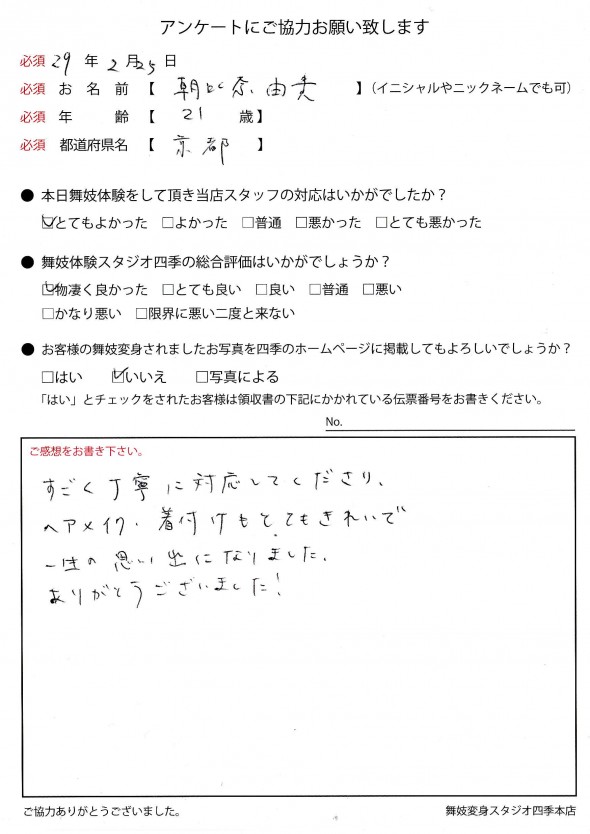 アンケートにご協力お願い致します
必須 29 年 2 月 25 日
必須 お 名 前 【 朝比奈 由貴 】 (イニシャルやニックネームでも可)
必須 年 齢 【 21 歳】
必須 都道府県名 【 京都 】
● 本日舞妓体験をして頂き当店スタッフの対応はいかがでしたか？
☑とてもよかった □よかった □普通 □悪かった □とても悪かった
● 舞妓体験スタジオ四季の総合評価はいかがでしょうか？
☑物凄く良かった □とても良い □良い □普通 □悪い
□かなり悪い □限界に悪い二度と来ない
● お客様の舞妓変身されましたお写真を四季のホームページに掲載してもよろしいでしょうか？
□はい ☑いいえ □写真による
「はい」とチェックをされたお客様は領収書の下記にかかれている伝票番号をお書きください。
No.
ご感想をお書き下さい。
すごく丁寧に対応してくださり、
ヘアメイク・着付けもとてもきれいで
一生の思い出になりました。
ありがとうございました！
ご協力ありがとうございました。 舞妓変身スタジオ四季本店